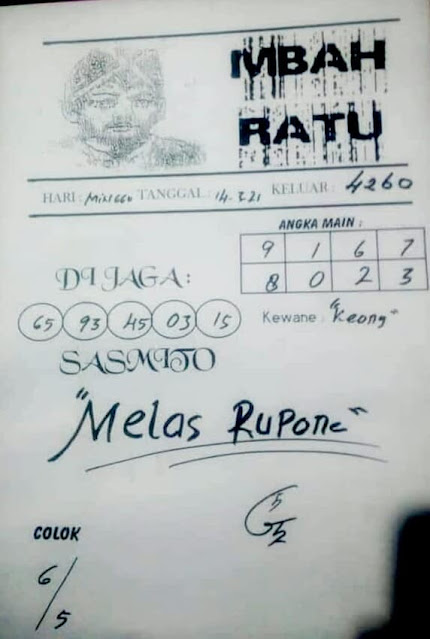 MBAH
RATU
HARI : Minggu TANGGAL : 14-3-21 KELUAR : 4260
ANGKA MAIN :
9 1 6 7
8 0 2 3
DI JAGA :
65 93 45 03 15
Kewane : "Keong"
SASMITO
"Melas Rupone"
COLOK
6/5